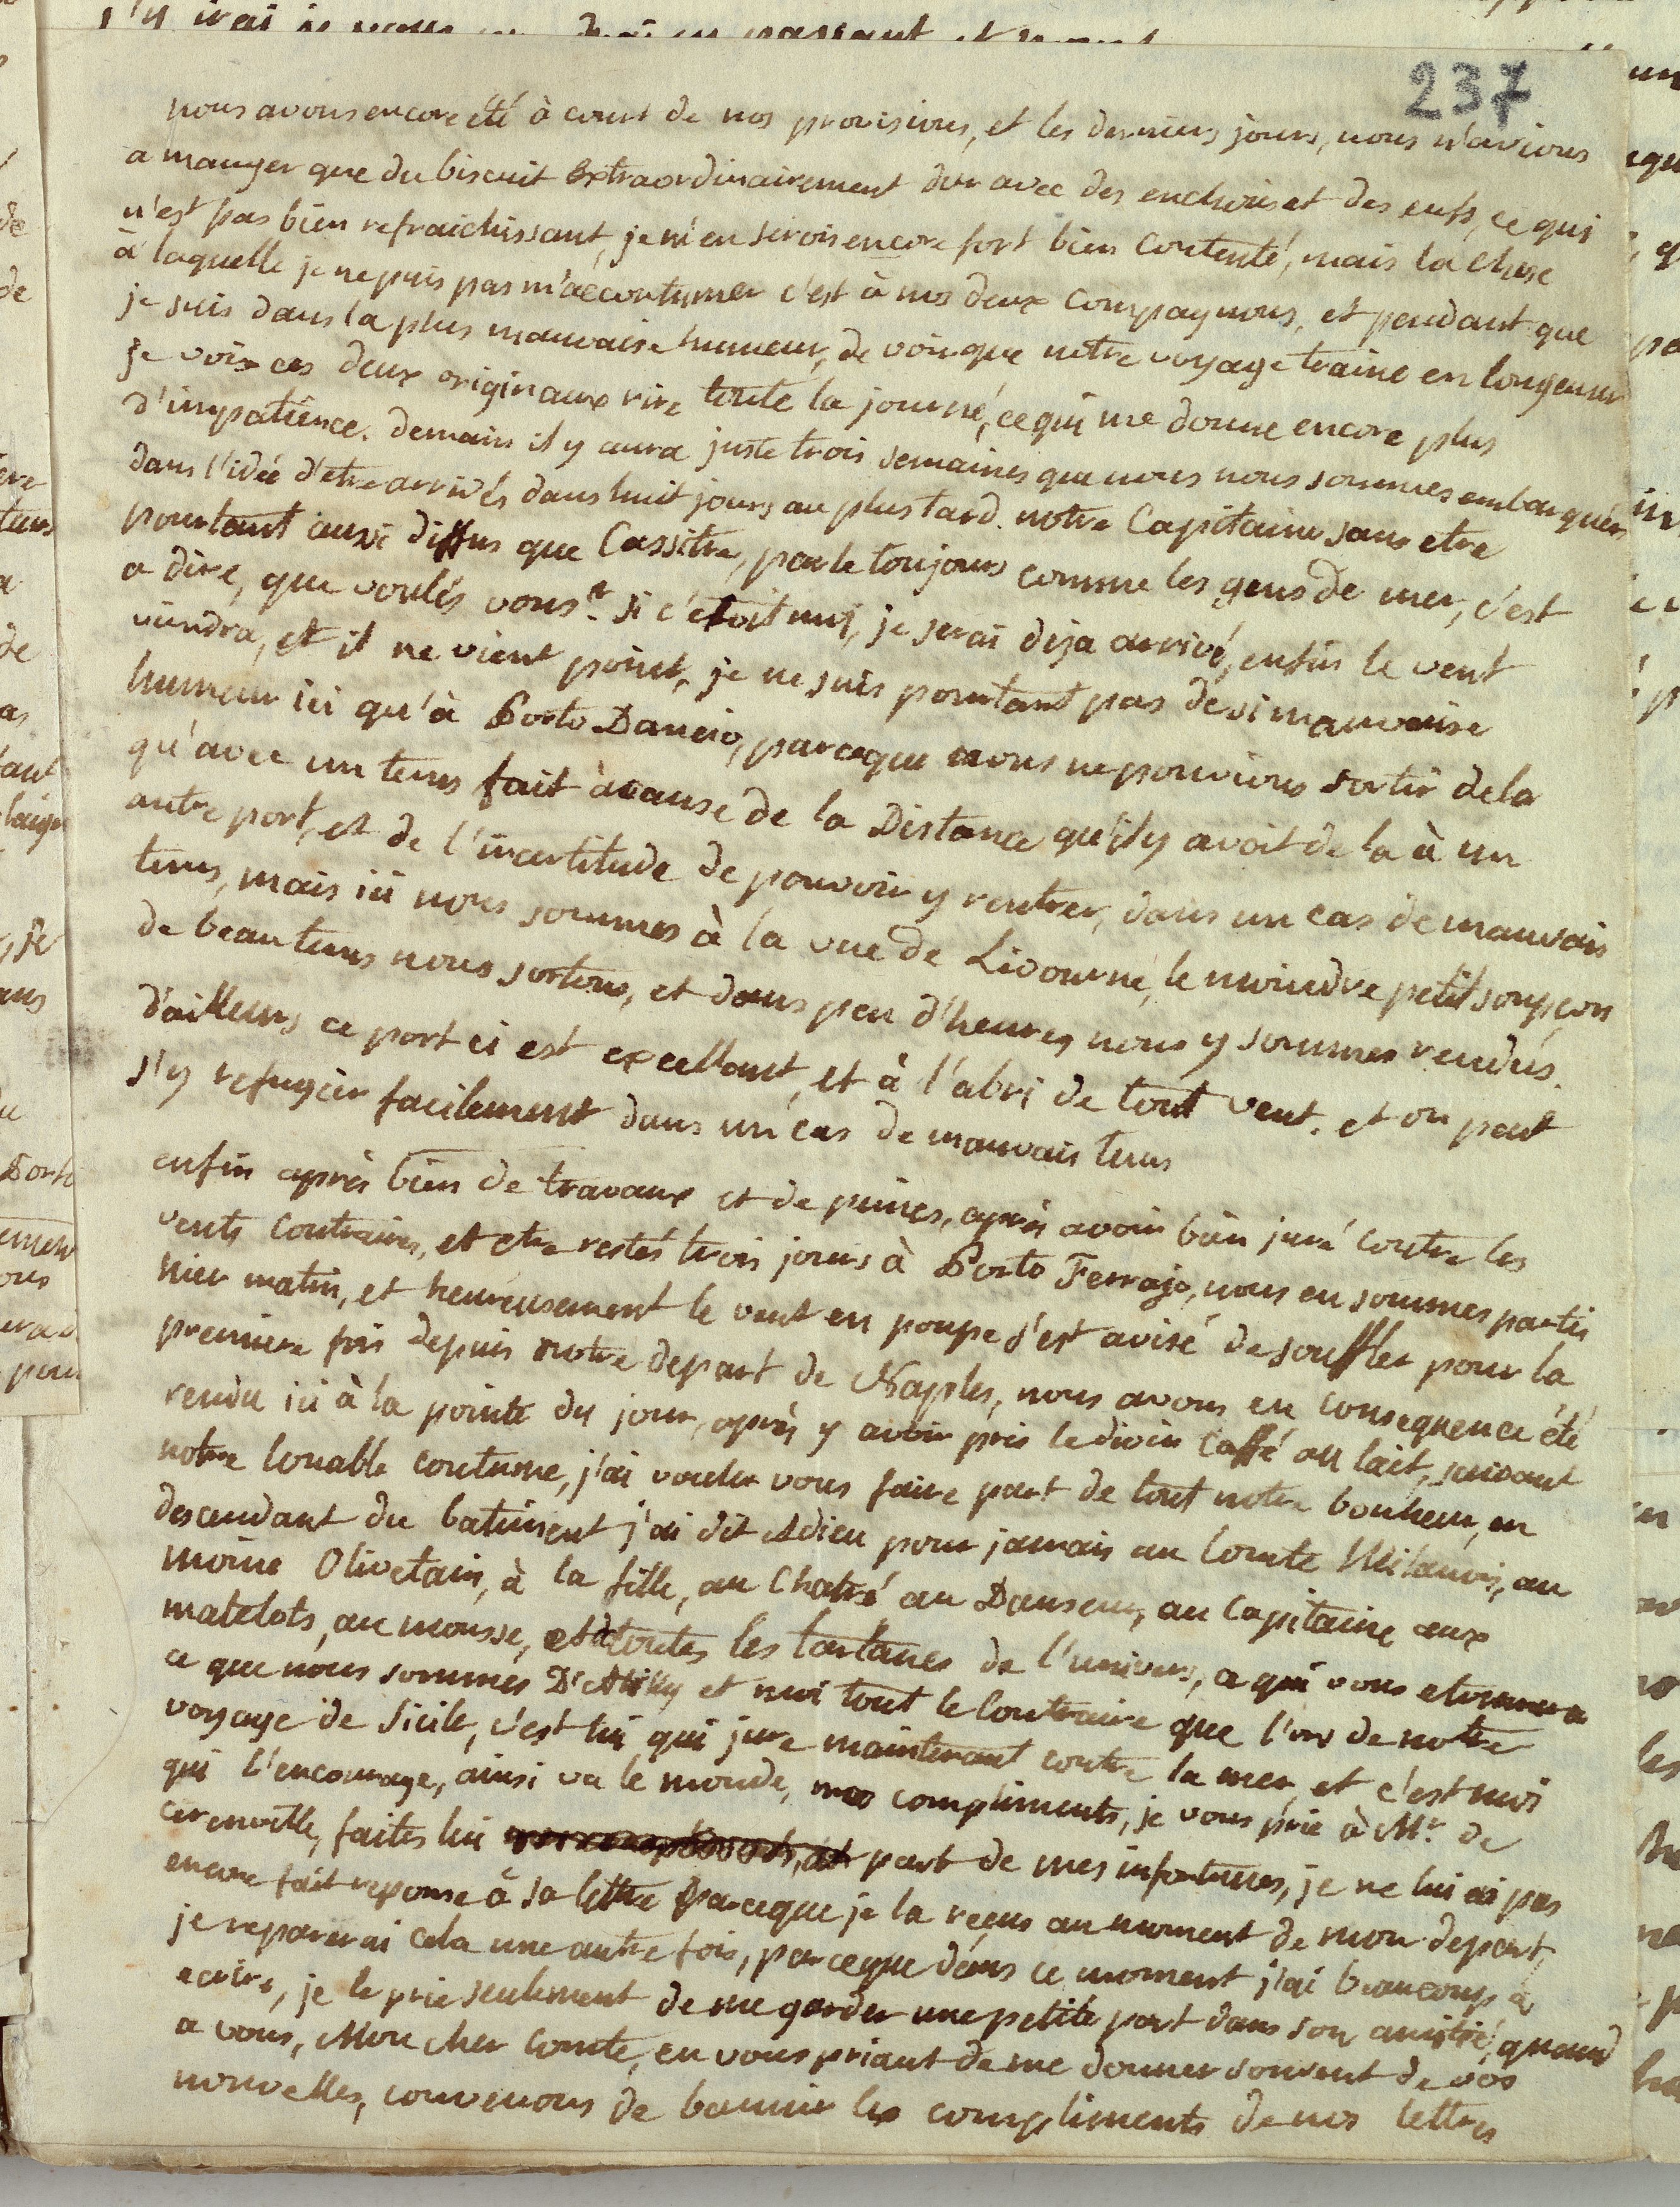 237
nous avons encore été à court de nos provisions, et les derniers jours, nous n'avions
a manger que du biscuit extraordinairement dur avec des enchois et des eufs, ce qui
n'est pas bien refraichissant, je m'en serois encore fort bien contenté, mais la chose
à laquelle je ne puis pas m'accoutumer c'est à nos deux compagnons, et pendant que
je suis dans la plus mauvaise humeur, de voir que notre voyage traine en longeueur
je vois ces deux originaux rire toute la journé, ce qui me donne encore plus
d'impatience. demain il y aura juste trois semaines que nous nous sommes embarqués
dans l'idée d'etre arrivés dans huit jours au plus tard. notre Capitaine sans etre
pourtant aussi diffus que Cassitre, parle toujours comme les gens de mer, c'est
a dire, que voulés vous? si c'etoit moi, je serai deja arrivé, enfin le vent
viendra, et il ne vient point, je ne suis pourtant pas de si mauvaise
humeur ici qu'à Porto Dancio, parceque nous ne pouvions sortir de la
qu'avec un tems fait à cause de la Distance qu'il y avoit de la à un
autre port, et de l'incertitude de pouvoir y rentrer, dans un cas de mauvais
tems, mais ici nous sommes à la vue de Livourne, le moindre petit soupçon
de beau tems nous sortons, et dans peu d'heures nous y sommes rendus.
d'ailleurs ce port ci est excellant, et à l'abri de tout vent. et on peut
s'y refugier facilement dans un cas de mauvais tems
enfin après bien de travaux et de peines, après avoir bien juré contre les
vents contraires, et etre restés trois jours à Porto Ferrajo, nous en sommes partis
hier matin, et heureusement le vent en poupe s'est avisé de souffler pour la
premiere fois depuis notre depart de Naples, nous avons en consequence été
rendu ici à la pointe du jour, après y avoir pris le divin Caffé au lait, suivant
notre louable coutume, j'ai voulu vous faire part de tout notre bonheur, en
descendant du batiment j'ai dit Adieu pour jamais au Comte Milanois, au
moine Olivetain, à la fille, au Chatré au Danseur, au Capitaine aux
matelots, au mousse, et à toutes les tartanes de l'univers, ce qui vous etonnera
ce que nous sommes D'Ailly et moi tout le Contraire que l'ors de notre
voyage de Sicile, c'est lui qui jure maintenant contre la mer, et c'est moi
qui l'encourage, ainsi va le monde, mes compliments, je vous prie à Mr. de
cerenville, faites lui part de mes infortunes, je ne lui ai pas
encore fait reponse à sa lettre parceque je la reçus au moment de mon depart,
je reparerai cela une autre fois, parceque dans ce moment j'ai beaucoup à
ecrire, je le prie seulement de me garder une petite part dans son amitié, quand
a vous, Mon cher Comte, en vous priant de me donner souvent de vos
nouvelles, convenons de bannir les compliments de nos lettres